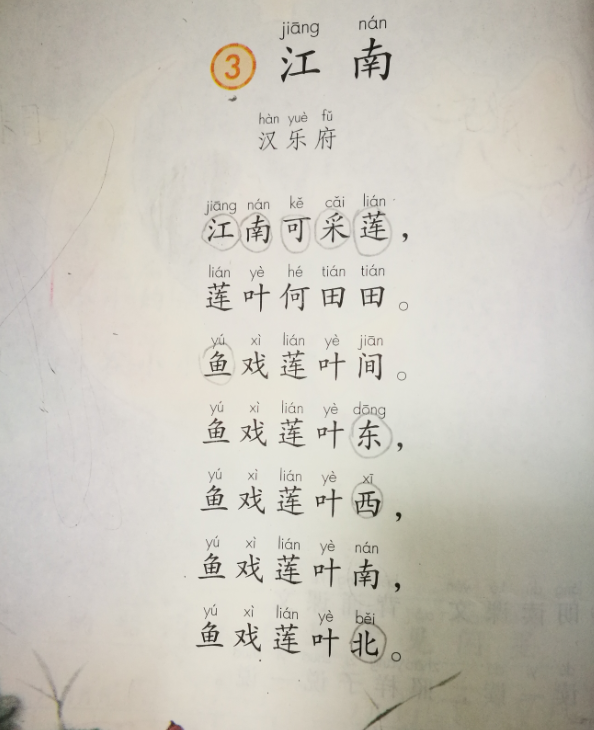 jiāng nán
3 江南
hàn yuè fǔ
汉乐府
jiāng nán kě cǎi lián
江南可采莲，
lián yè hé tián tián
莲叶何田田。
yú xì lián yè jiān
鱼戏莲叶间。
yú xì lián yè dōng
鱼戏莲叶东，
yú xì lián yè xī
鱼戏莲叶西，
yú xì lián yè nán
鱼戏莲叶南，
yú xì lián yè běi
鱼戏莲叶北。